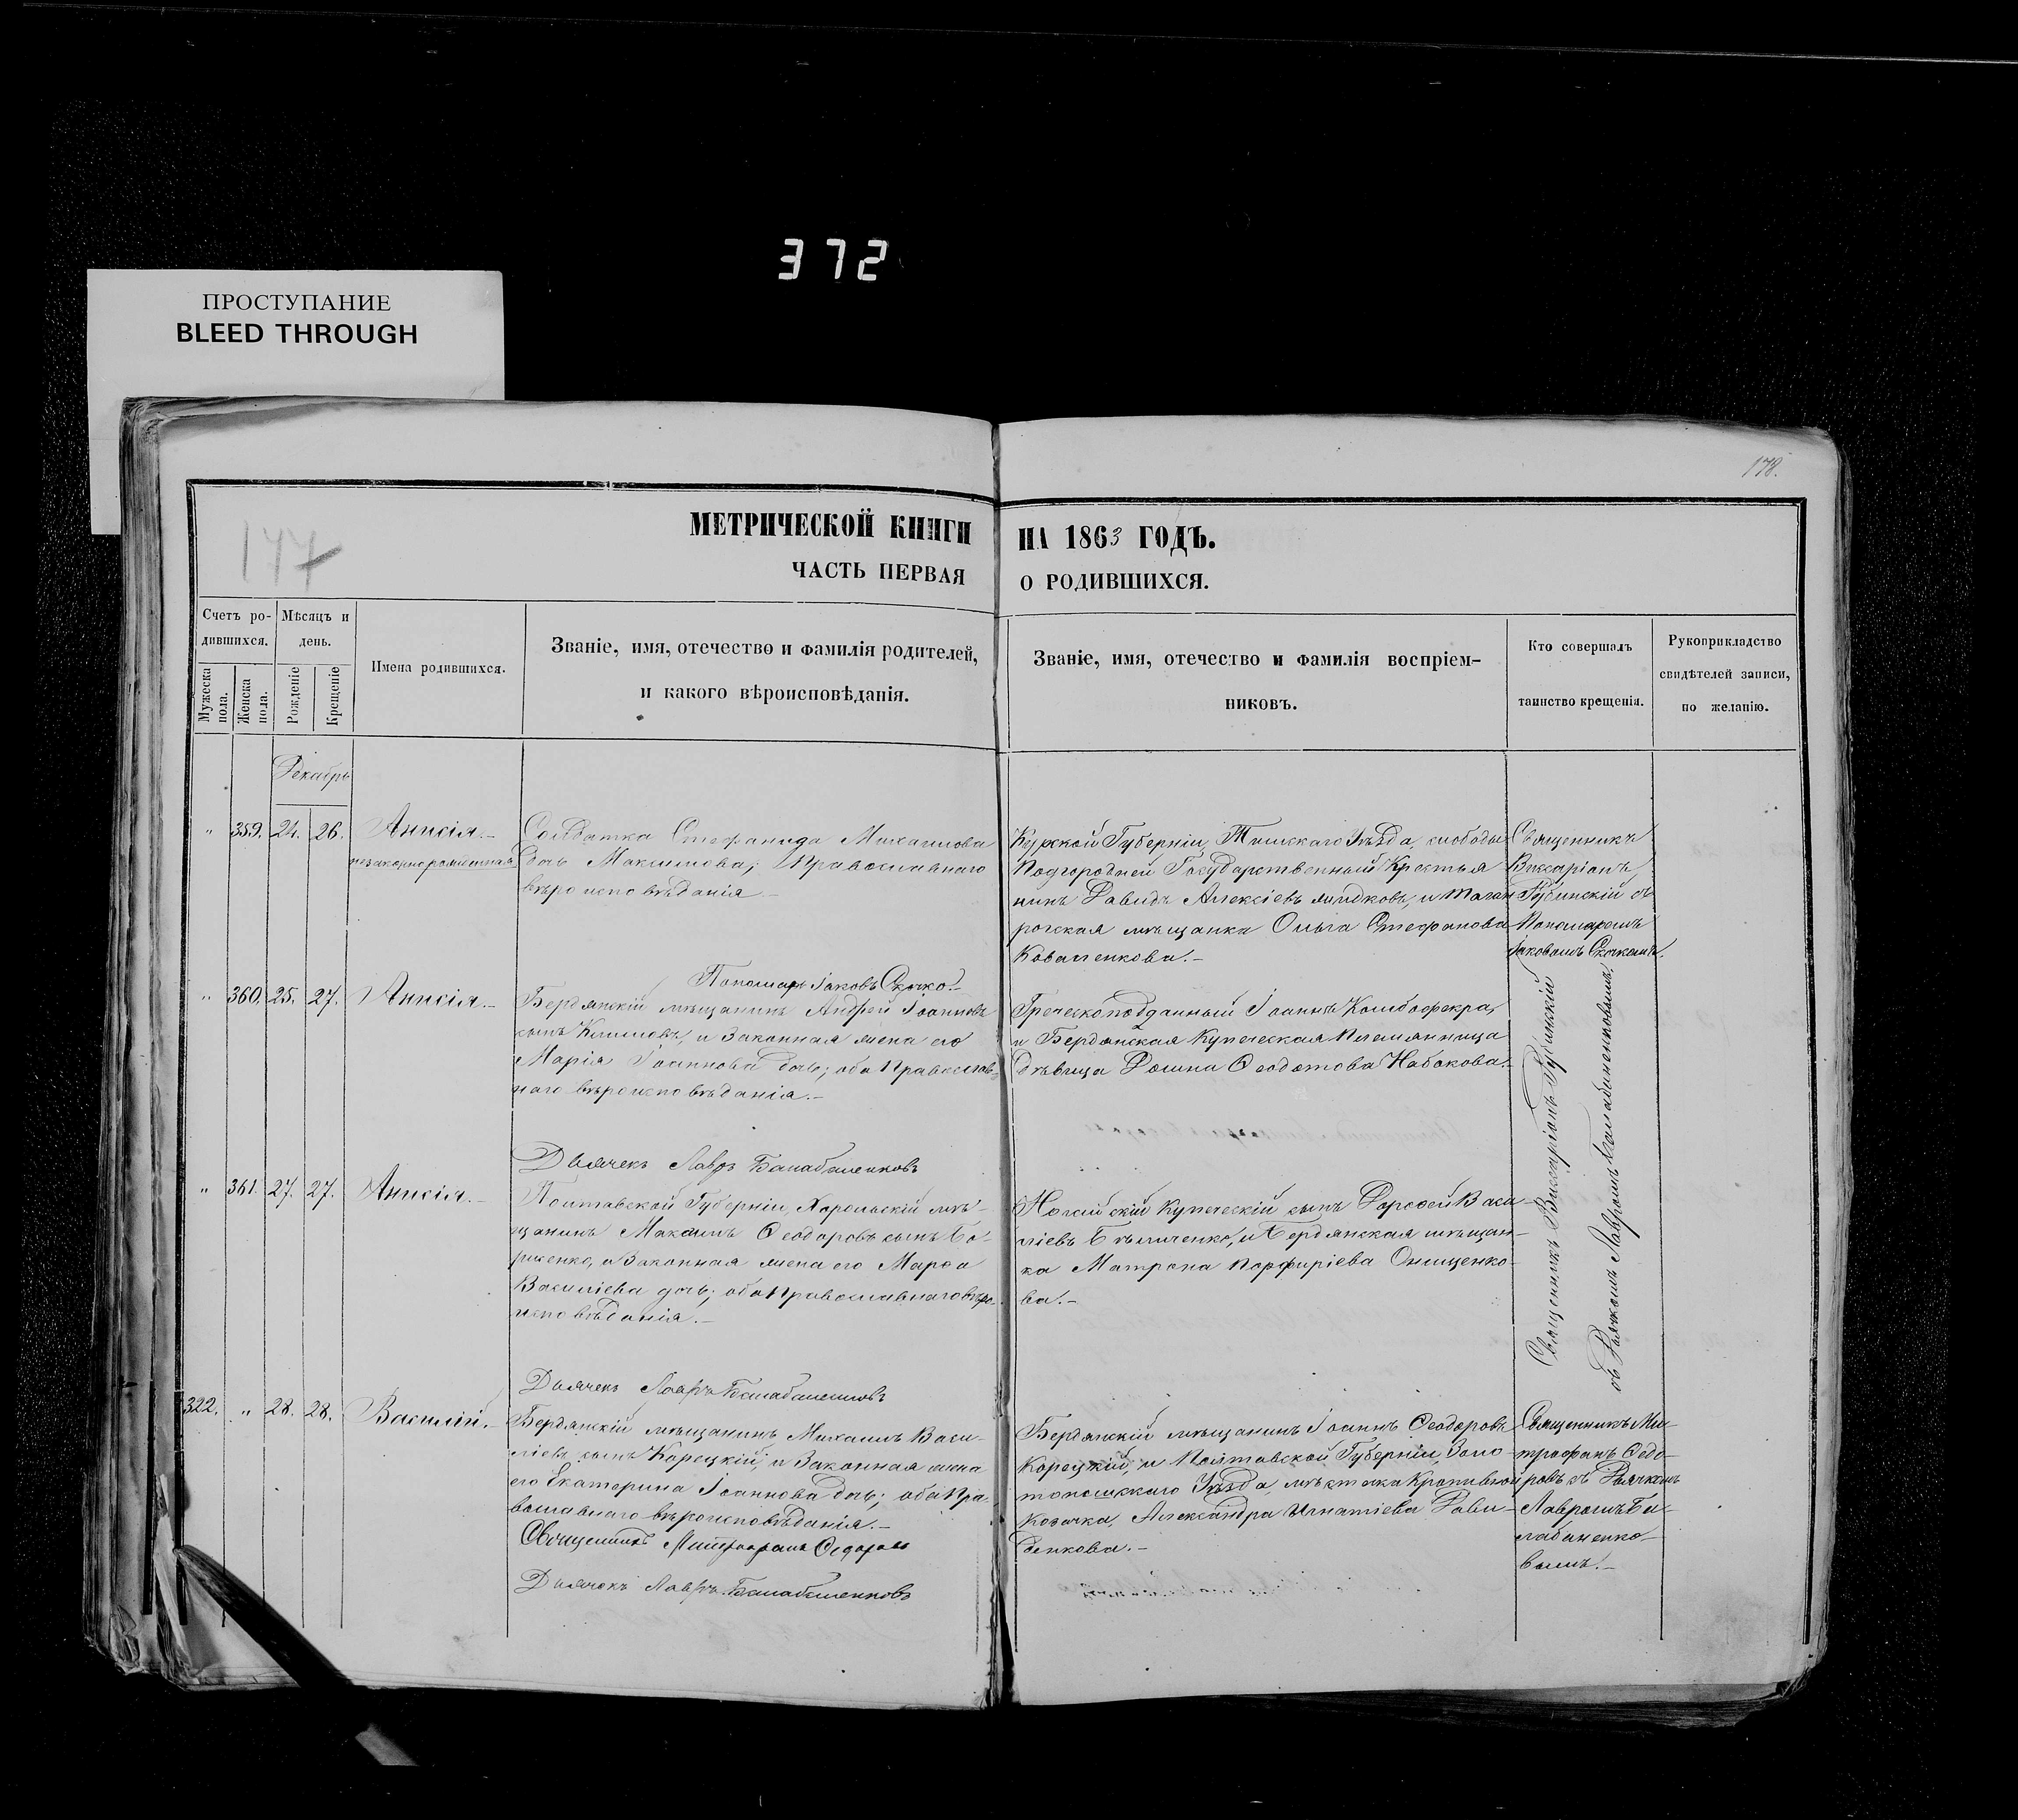 372
ПРОСТУПАНИЕ
BLEED THROUGH
178.
177
МЕТРИЧЕСКОЙ КНИГИ НА 1863 ГОДЪ.
ЧАСТЬ ПЕРВАЯ О РОДИВШИХСЯ.
Счетъ ро-
дившихся.
Мужеска пола.
Женска пола.
Мѣсяцъ и
день.
Рожденіе
Крещеніе
Имена родившихся.
Званіе, имя, отечество и фамилія родителей,
и какого вѣроисповѣданія.
Званіе, имя, отечество и фамилія воспріем-
никовъ.
Кто совершалъ
таинство крещенія.
Рукоприкладство
свидѣтелей записи,
по желанію.
Декабрь
" 359. 24. 26. Анисія.-
незаконнорожденная
Солдатка Стефанида Михаилова
дочь Максимова; Православнаго
вѣроисповѣданія-
Курской Губерніи, Тимскаго Уѣзда, слободы
Подгородней Государственный Крестья
нинъ Давидъ Алексіевъ, и Таган
рогская мѣщанка Ольга Стефанова
Коваленкова.-
Священникъ
Виссаріонъ
съ
Пономаромъ
Іаковомъ
Пономарь Іаковъ
" 360. 25. 27. Анисія.-
Бердянскій мѣщанинъ Андрей Іоанновъ
сынъ Климовъ, и Законная жена его
Марія Іоаннова дочь; оба Православ-
наго вѣроисповѣданія.-
Греческоподданный Іоаннъ
и Бердянская Купеческая Племянница
дѣвица Домна Ѳеодотова Набокова.-
Священникъ Виссаріонъ
съ Дьячкомъ Лавромъ Балабаненковымъ.
Дьячекъ Лавръ Балабаненковъ
" 361. 27. 27. Анисія.-
Полтавской Губерніи, Хорольскій мѣ-
щанинъ Максимъ Ѳеодоровъ сынъ Бо-
рисенко, и Законная жена его Марѳа
Василіева дочь; оба Православнаго вѣро-
исповѣданія.-
Купеческій сынъ Васи-
ліевъ и Бердянская мѣщан-
ка Матрона Порфиріева Онищенко-
ва.-
Дьячекъ Лавръ Балабаненковъ
322. " 28. 28. Василій.-
Бердянскій мѣщанинъ Михаилъ Васи-
ліевъ сынъ Корецкій, и Законная жена
его Екатерина Іоаннова дочь; оба Пра-
вославнаго вѣроисповѣданія.-
Бердянскій мѣщанинъ Іоаннъ Ѳеодоровъ
Корецкій, и Полтавской Губерніи, Золо-
тоношскаго Уѣзда, мѣстечка Кропивной
Козачка, Александра Игнатіева Дави-
денкова.-
Священникъ Ми-
трофанъ Ѳедо-
ровъ съ Дьячкомъ
Лавромъ Ба-
лабаненко-
вымъ.-
Священникъ Митрофанъ Ѳедоровъ
Дьячокъ Лавръ Балабаненковъ